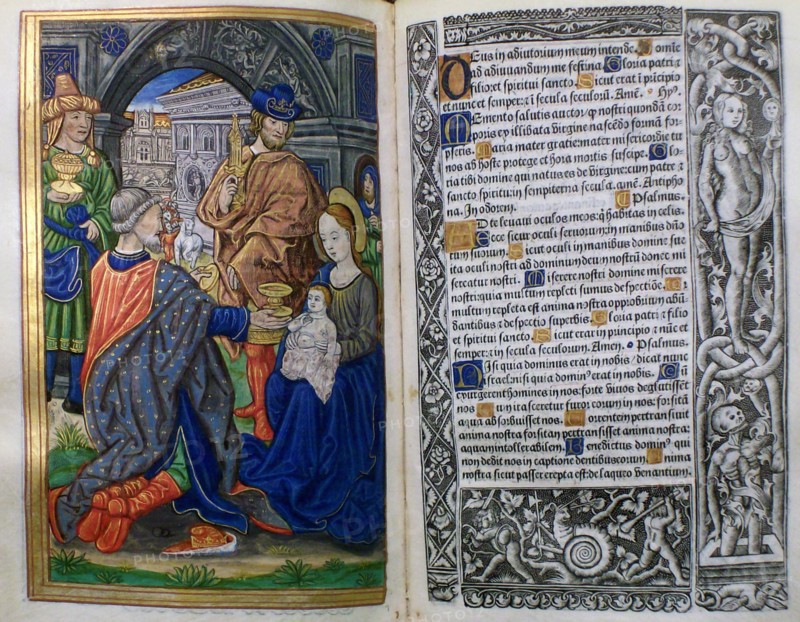 Deus in adiutorium meum intende. Domine
ad adiuvandum me festina. Gloria patri et
filio: et spiritui sancto. Sicut erat i principio
et nunc et semper: et i secula seculorū. Amē. Hyṡ.
Memento salutis auctor: ꝙ nostri quondā cor
poris ex illibata virgine nascēdo formā sum-
pseris. Maria mater gratie: mater misericordie tu
nos ab hoste protege et hora mortis suscipe. Glo-
ria tibi domine qui natus es de virgine: cum patre et
sancto spiritu: in sempiterna secula. amē. Antipho
na. In odorem. Psalmus.
Ad te levavi oculos meos: q̇ habitas in celis.
Ecce sicut oculi servorum: in manibus dn̄o
rum suorum. Sicut oculi in manibus domine sue
ita oculi nostri ad dominum deum nostrū donec mi
sereatur nostri. Miserere nostri domine miserere
nostri: quia multum repleti sumus despectiōe.
multum repleta est anima nostra opprobrium abū
dantibus et despectio superbis. Gloria patri et filio
et spiritui sancto. Sicut erat in principio et nūc et
semper: et in secula seculorum. Amen. Psalmus.
Nisi quia dominus erat in nobis / dicat nunc
israel: nisi quia domin9 erat in nobis. Cū
exurgerent homines in nos: forte vivos deglutissēt
nos. Cum irasceretur furor eorum in nos: forsitā
aqua absorbuisset nos. Torrentem pertransivit
anima nostra forsitan pertransisset anima nostra:
aquam intollerabilem. Benedictus domin9 qui
non dedit nos in captione dentibus eorum. Anima
nostra sicut passer erepta est: de laqueo venantium.